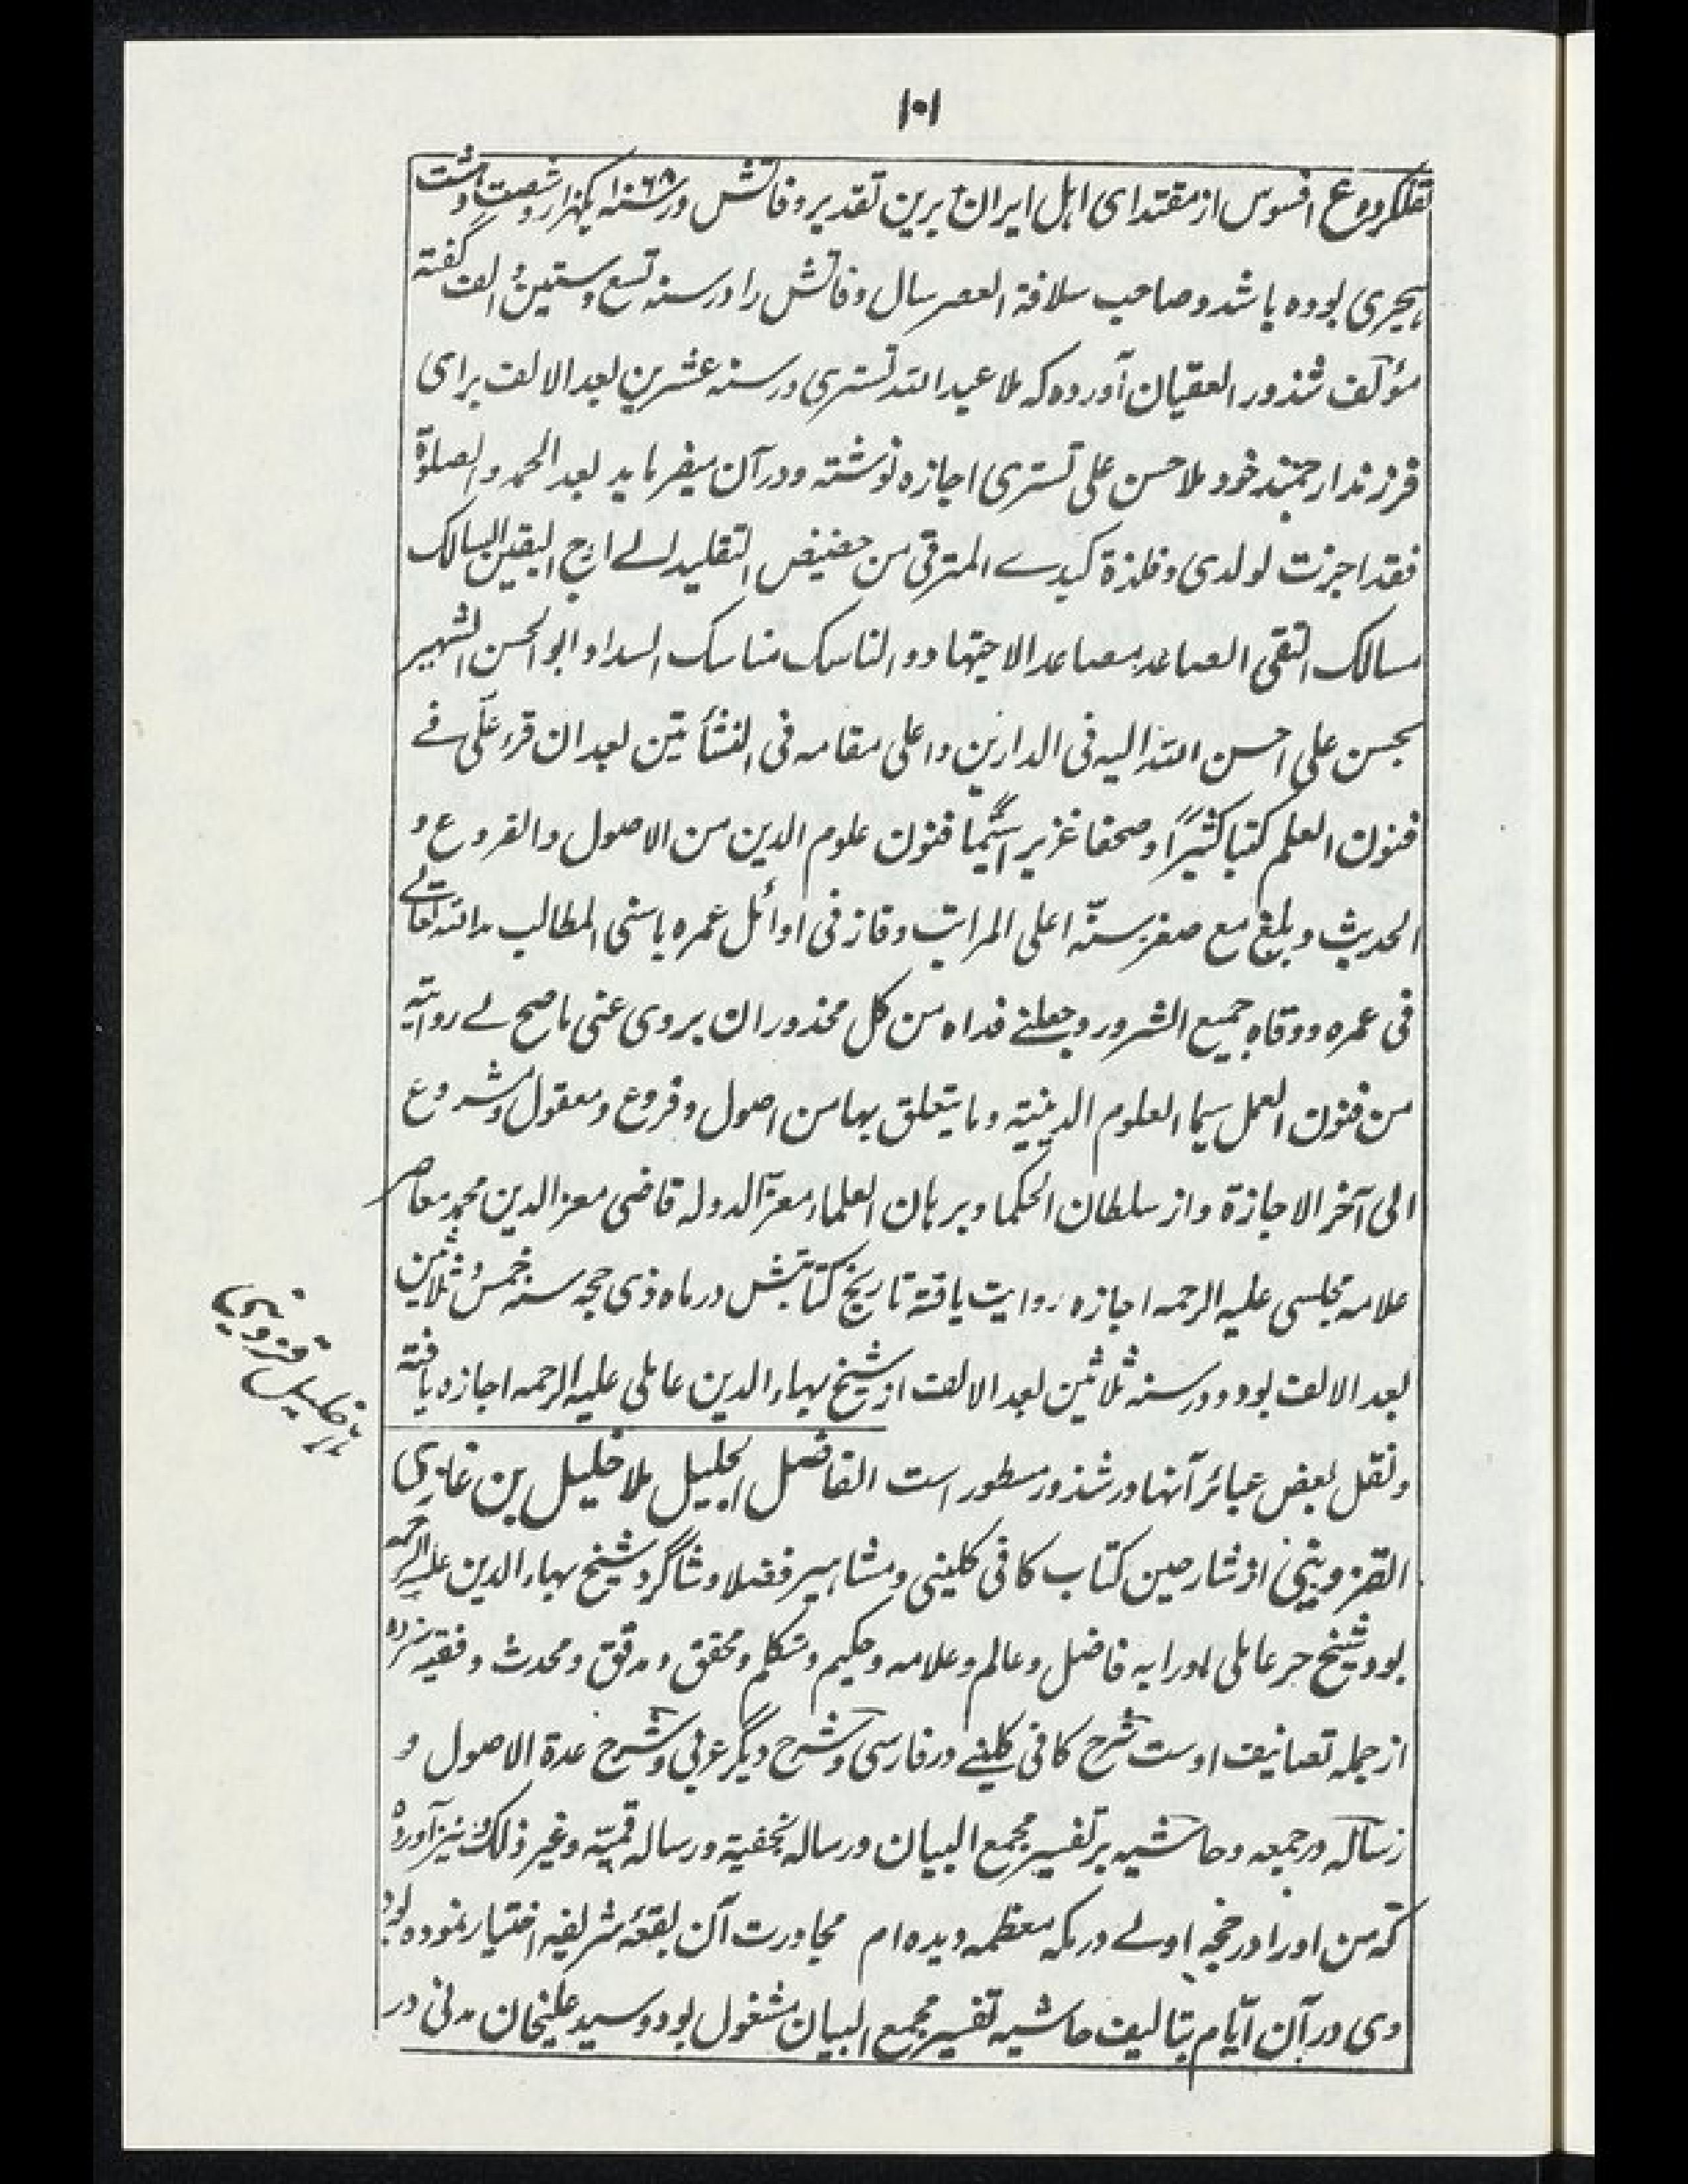 ۱۰۱
نقلکرده ع افسوس از مقتدای اهل ایران + برین تقدیر وفاتش در سنه ۱۰۶۸ یکهزار و شصت و هشت
هجری بوده باشد و صاحب سلافة العصر سال وفاتش را در سنه تسع و ستین و الف گفته
مؤلف شذور العقیان آورده که ملا عبد الله تستری در سنه عشرین بعد الالف برای
فرزند ارجمند خود ملا حسن علی تستری اجازه نوشته و در آن میفرماید بعد الحمد و الصلوة
فقد اجزت لولدی و فلذة کبدے المترقی من حضیض التقلید الے اوج الیقین السالک
مسالک التقی الصاعد مصاعد الاجتهاد و الناسک مناسک السداد ابو الحسن الشهیر
بحسن علی احسن الله الیه فی الدارین و اعلی مقامه فی النشأتین بعد ان قرء علّی فے
فنون العلم کتبا کثیرًا و صحفا غزیرا سیّما فنون علوم الدین من الاصول و الفروع و
الحدیث و بلغ مع صغر سنّه اعلی المراتب و فاز فی اوائل عمره باسنی المطالب مد الله تعالے
فی عمره و وقاه جمیع الشرور و جعلنے فداه من کل محذور ان یروی عنی ما صح لے روایته
من فنون العمل سیما العلوم الدینیة و ما یتعلق بها من اصول و فروع و معقول و مشروع
الی آخر الاجازة و از سلطان الحکما و برهان العلماء معزّ الدوله قاضی معز الدین محمد معاصر
علامه مجلسی علیه الرحمه اجازه روایت یافته تاریخ کتابتش در ماه ذی حجه سنه خمس و ثلاثین
بعد الالف بود و در سنه ثلاثین بعد الالف از شیخ بهاء الدین عاملی علیه الرحمه اجازه یافته
و نقل بعض عبائر آنها در شذور مسطور است الفاضل الجلیل ملا خلیل بن غازی
القزوینی از شارحین کتاب کافی کلینی و مشاهیر فضلا و شاگرد شیخ بهاء الدین علیه الرحمه
بود شیخ حر عاملی اورا به فاضل و عالم و علامه و حکیم و متکلم و محقق و مدقق و محدث و فقیه
از جمله تصانیف اوست شرح کافی کلینے در فارسی و شرح دیگر عربی و شرح عدة الاصول و
رساله در جمعه و حاشیه بر تفسیر مجمع البیان و رساله نجفیة و رساله قمیّه و غیر ذلک و نیز آورده
که من اورا در حجه اولے در مکه معظمه دیده ام مجاورت آن بقعهٔ شریفه اختیار نموده بود
وی در آن ایّام بتالیف حاشیه تفسیر مجمع البیان مشغول بود و سید علیخان مدنی در
ملا خلیل قزوینی